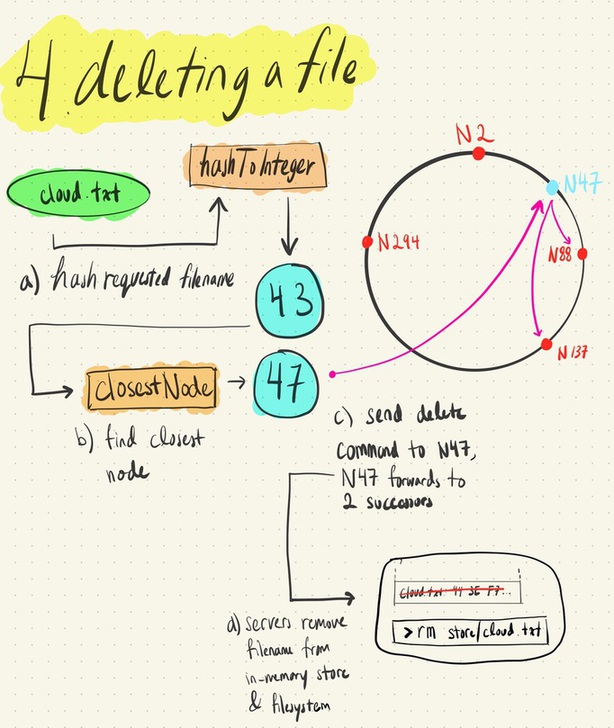 4. deleting a file
cloud.txt
hashToInteger
a) hash requested filename
43
closestNode
47
b) find closest
node
N2
N47
N88
N137
N294
c) send delete
command to N47,
N47 forwards to
2 successors
d) servers remove
filename from
in-memory store
& filesystem
cloud.txt 44 3E F7...
>rm store/cloud.txt